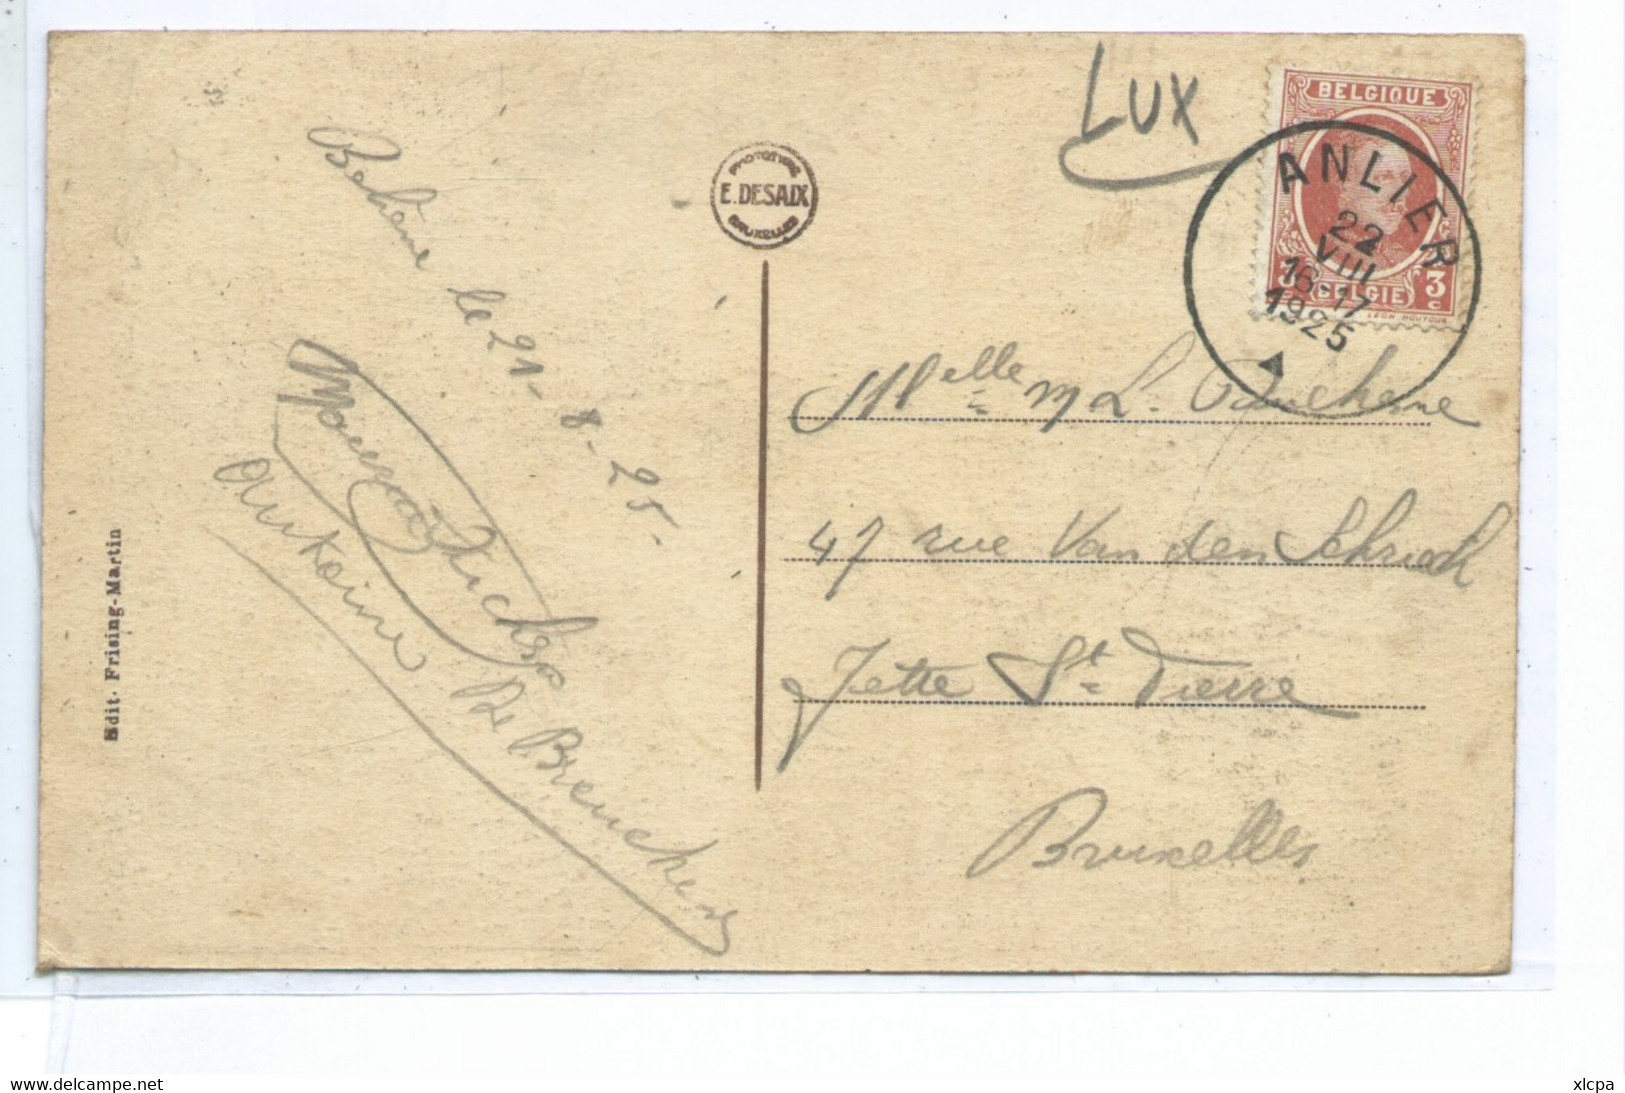 LUX
BELGIQUE
3 3
c
BELGIE
LÉON HOUYOUX
ANLIER
22
VIII
16-17
1925
PHOTOTYPIE
E. DESAIX
BRUXELLES
Behême le 21-8-25-
Antoine De Breucker
Edit. Frising-Martin
Melle M L.
47 rue Van den Schrieck
Jette St Pierre
Bruxelles
delcampe.net
xlcpa